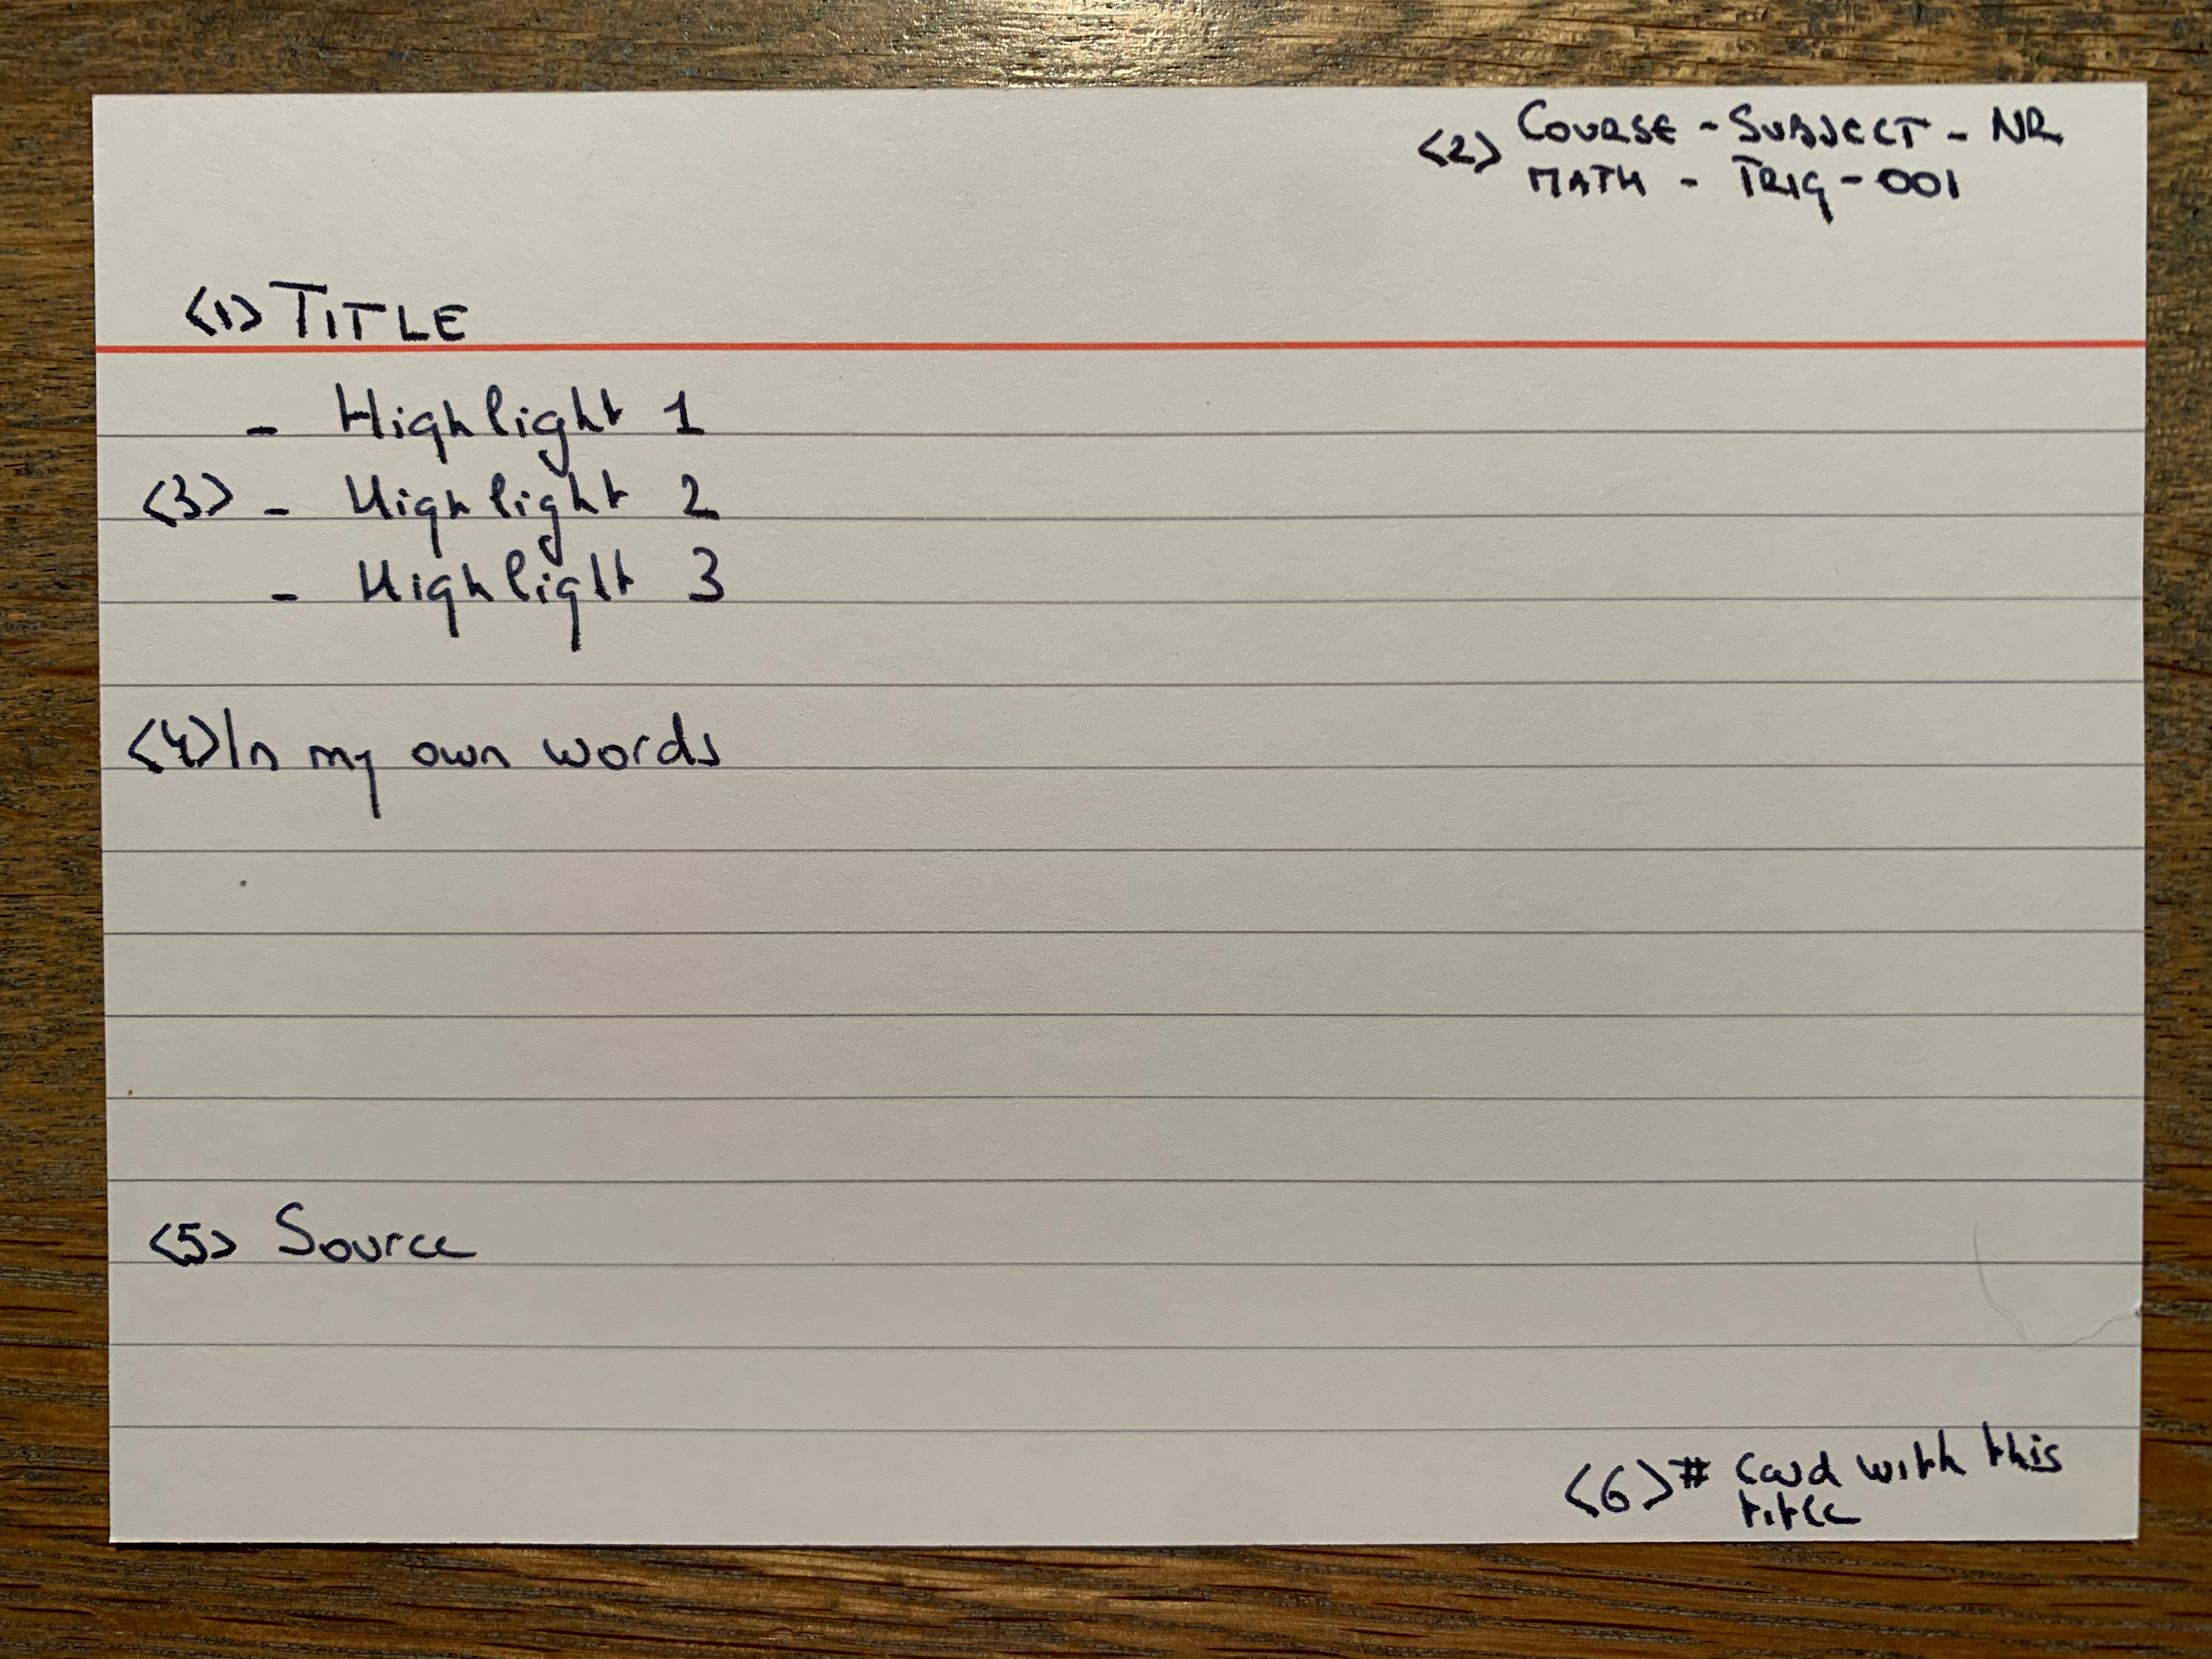 <2> COURSE - SUBJECT - NR
MATH - TRIG - 001
<1> TITLE
- Highlight 1
<3> - Highlight 2
- Highlight 3
<4> In my own words
<5> Source
<6> # Card with this
title